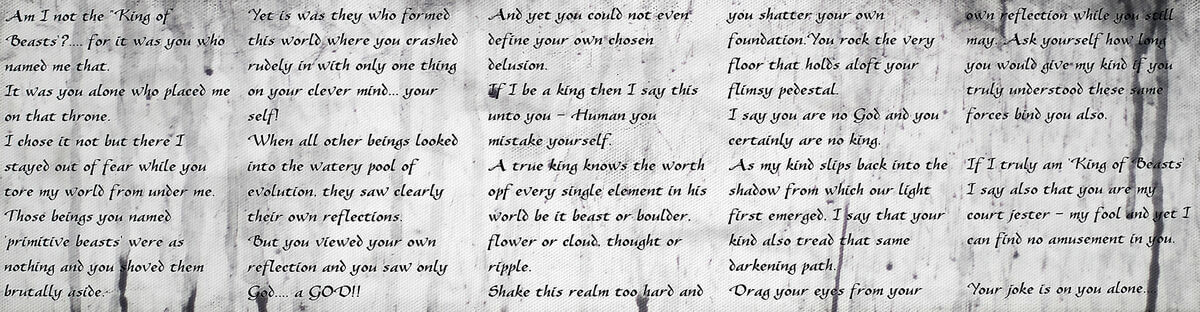 Am I not the "King of
Beasts"?.... for it was you who
named me that.
It was you alone who placed me
on that throne.
I chose it not but there I
stayed out of fear while you
tore my world from under me.
Those beings you named
'primitive beasts' were as
nothing and you shoved them
brutally aside.
Yet is was they who formed
this world where you crashed
rudely in with only one thing
on your clever mind... your
self!
When all other beings looked
into the watery pool of
evolution, they saw clearly
their own reflections.
But you viewed your own
reflection and you saw only
God.... a GOD!!
And yet you could not even
define your own chosen
delusion.
If I be a king then I say this
unto you - Human you
mistake yourself.
A true king knows the worth
opf every single element in his
world be it beast or boulder,
flower or cloud, thought or
ripple.
Shake this realm too hard and
you shatter your own
foundation. You rock the very
floor that holds aloft your
flimsy pedestal.
I say you are no God and you
certainly are no king.
As my kind slips back into the
shadow from which our light
first emerged, I say that your
kind also tread that same
darkening path.
Drag your eyes from your
own reflection while you still
may. Ask yourself how long
you would give my kind if you
truly understood these same
forces bind you also.
If I truly am 'King of Beasts'
I say also that you are my
court jester - my fool and yet I
can find no amusement in you.
Your joke is on you alone...